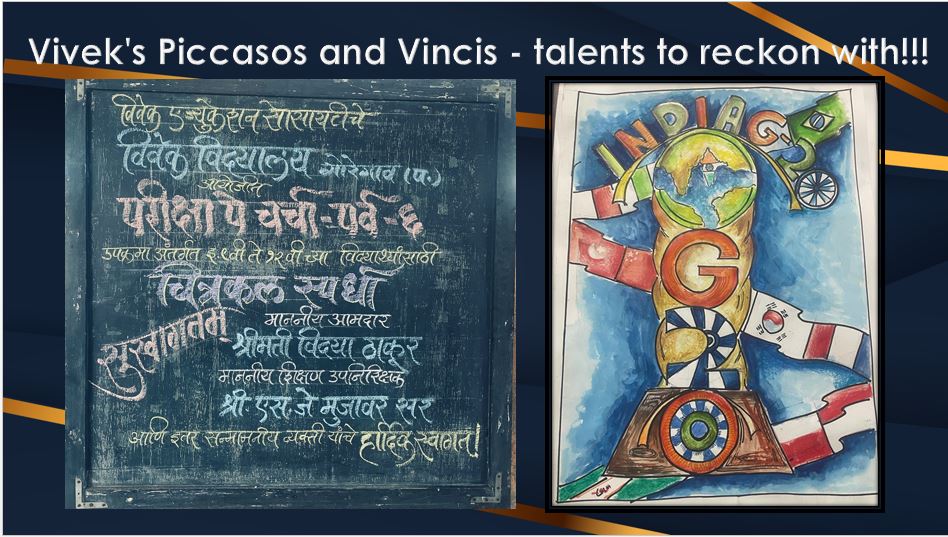 Vivek's Piccasos and Vincis - talents to reckon with!!!
विवेक एज्युकेशन सोसायटीचे
विवेक विद्यालय गोरेगाव (प.)
आयोजित
परीक्षा पे चर्चा-पर्व-६
उपक्रमा अंतर्गत इ.९वी ते १२वी च्या विद्यार्थ्यांसाठी
चित्रकल स्पर्धा
सुस्वागतम्
माननीय आमदार
श्रीमती विद्या ठाकुर
माननीय शिक्षण उपनिरिक्षक
श्री. एस. जे मुजावर सर
आणि इतर सन्माननीय व्यक्तीं यांचे हार्दिक स्वागत!
INDIA G2
G
2